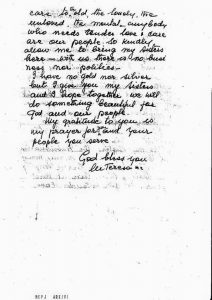 care is old, the lonely, the
unloved, the mental, anybody
who needs tender love & care
are our people so kindly
allow me to bring my Sisters
here – with us there is no busi
ness nor politics –
I have no gold nor silver
but I give you my Sisters
and I hope together we will
do something beautiful for
God and our people.
My gratitude to you is
my prayer for you and your
people you serve.
God bless you
M Teresa mc